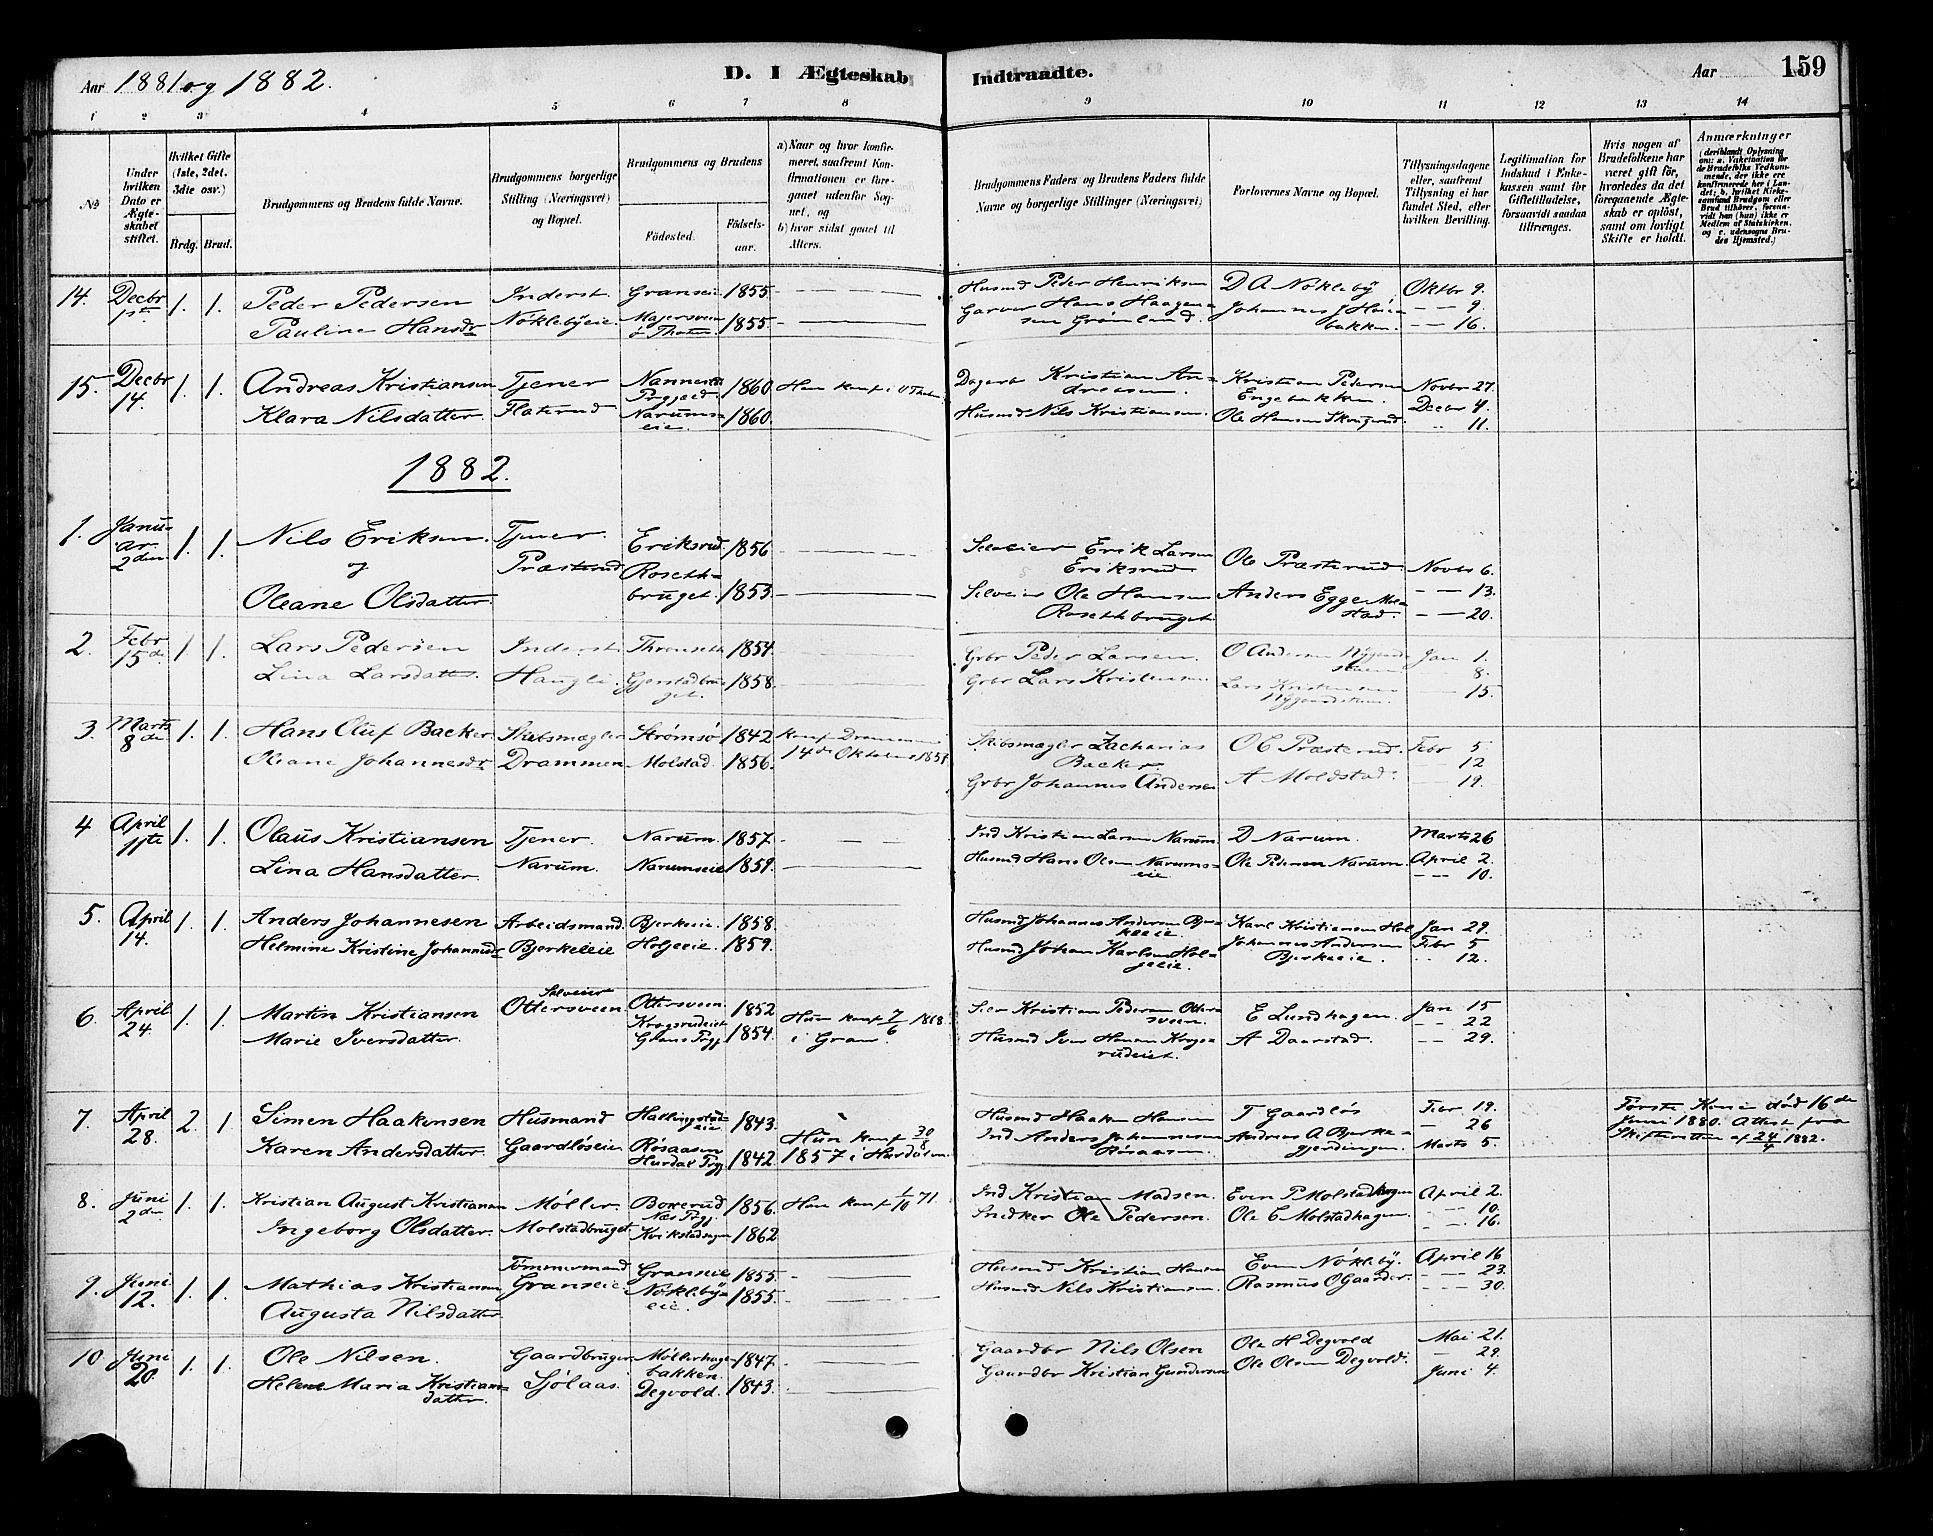 Aar 1881 og 1882.
D. I Ægteskab Indtraadte.
Aar 159
1 2 3 4 5 6 7 8 9 10 11 12 13 14
No
Under hvilken Dato er Ægteskabet stiftet.
Hvilket Gifte (1ste, 2det, 3die osv.)
Brdg. Brud.
Brudgommens og Brudens fulde Navne.
Brudgommens borgerlige Stilling (Næringsvei) og Bopæl.
Brudgommens og Brudens
Födested. Födsels-aar.
a) Naar og hvor konfirmeret, saafremt Konfirmationen er foregaaet udenfor Sognet, og
b) hvor sidst gaaet til Alters.
Brudgommens Faders og Brudens Faders fulde Navne og borgerlige Stillinger (Næringsvei)
Forlovernes Navne og Bopæl.
Tillysningsdagene eller, saafremt Tillysning ei har fundet Sted, efter hvilken Bevilling.
Legitimation for Indskud i Enkekassen samt for Giftetilladelse, forsaavidt saadan tiltrænges.
Hvis nogen af Brudefolkene har været gift før, hvorledes da det foregaaende Ægteskab er opløst, samt om lovligt Skifte er holdt.
Anmærkninger
14. Decbr 1ste 1. 1. Peder Pedersen Inderst. Granseie 1855 Husmd Peder Henriksen D A Nøkleby Oktbr 9.
Pauline Hansdr Nøklebyeie. 1855. Garver Hans Haagensen Grønland. Johannes J Høiebakken. 9. 16.
15. Decbr 14. 1. 1. Andreas Kristiansen Tjener Nannestad Prgjeld. 1860 Han konf i V Thoten Kristian Andreasen. Kristian Pedersen Engebakken. Novbr 27.
Klara Nilsdatter. Flaterud Narumseie. 1860. Husmd Nils Kristiansen. Ole Hansen Decbr 4. 11.
1882.
1. Januar 2den 1. 1. Nils Eriksen. Tjener. Eriksrud. 1856 Selveier Erik Larsen Eriksrud Ole Præsterud. Novbr 6.
og Præsterud 13.
Oleane Olsdatter. 1853. Selveier Ole Hansen Anders Egge 20.
2. Febr 15de 1. 1. Lars Pedersen Inderst 1854. Grbr Peder Larsen. O Andersen Jan 1.
Lina Larsdatter. Haugli. 1858. Grbr Lars Kristensen Lars Kristensen 8. 15.
3. Marts 8de 1. 1. Hans Oluf Backer Skibsmægler Strømsø 1842 konf Drammen Skibsmægler Zacharias Backer. O C Præsterud. Febr 5
Oleane Johannesdr Drammen Molstad. 1856. 14de Oktober Grbr Johannes Andersen A Moldstad. 12 19.
4 April 11te 1. 1. Olaus Kristiansen Tjener. Narum. 1857. Ind Kristian Larsen Narum. D Narum. Marts 26
Lina Hansdatter. Narum. Narumseie 1859. Husmd Hans Olsen Narumseie Ole Pedersen Narum. April 2. 10.
5. April 14. 1. 1. Anders Johannesen Arbeidsmand. Bjerkeie. 1858. Husmd Johannes Andersen Karl Kristiansen Hol Jan 29.
Helmine Kristine Johannesdr Bjerkeleie Holjeeie. 1859. Husmd Johan Karlsen Johannes Andersen Bjerkeeie. Febr 5 12.
6. April 24. 1. 1. Martin Kristiansen Selveier Ottersveen. Ottersveen. 1852 Hun konf 7/6 1868 Kristian Pedersen Ottersveen. E Lundhagen. Jan 15
Marie Iversdatter. Prgj 1854. i Gran. Husmd Iver Hansen A Daarstad. 22 29.
7. April 28. 2. 1. Simen Haakensen Husmand 1843. Husmd Haaken Hansen T Gaardløs Febr 19. 26 Første Kone død 16de Juni 1880. Attest fra Skifteretten af 24/4 1882.
Karen Andersdatter. Gaardløseie. Røsaasen Hurdal Prgj 1842. Hun konf 30/8 1857 i Hurdalen. Ind Anders Johannesen Røsaasen. Andreas A Bjerkegjerdingen. Marts 5.
8. Juni 2den 1. 1. Kristian August Kristiansen Møller. Bokerud Næs Prgj. 1856. Han konf 1/10 71. Ind Kristian Madsen. Even P Molstadhagen April 2.
Ingeborg Olsdatter. Molstadbruget. 1862 Snedker Ole Pedersen. Ole E Molstadhagen. 10. 16.
9. Juni 12. 1. 1. Mathias Kristiansen Tømmermand Granseie Granseie 1855. Husmd Kristian Hansen Even Nøkleby. April 16
Augusta Nilsdatter Nøklebyeie. 1855. Husmd Nils Kristiansen. Rasmus O Gaarder. 23. 30.
10. Juni 20. 1. 1. Ole Nilsen. Gaardbruger Møllerhagebakken. 1847. Gaardbr Nils Olsen Ole H Degvold Mai 21. 29.
Helene Maria Kristiansdatter. Sjølaas. Degvold. 1843. Gaardbr Kristian Gundersen Ole Olsen Degvold. Juni 4.